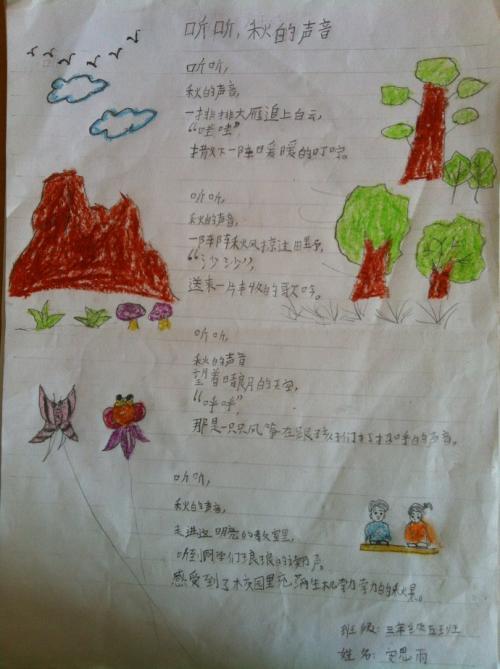 听听，秋的声音
听听，
秋的声音，
一排排大雁追上白云，
“哇哇”
撒下一阵暖暖的叮咛。
听听，
秋的声音，
一阵阵秋风掠过田野，
“沙沙”，
送来一片丰收的歌吟。
听听，
秋的声音
望着晴朗的天空，
“呼呼”，
那是一只只风筝在跟孩子们打招呼的声音。
听听，
秋的声音，
走进这明亮的教室里，
听到同学们琅琅的读书声。
感受到了校园里充满生机勃勃的秋景。
班级：三年级
姓名：安思雨